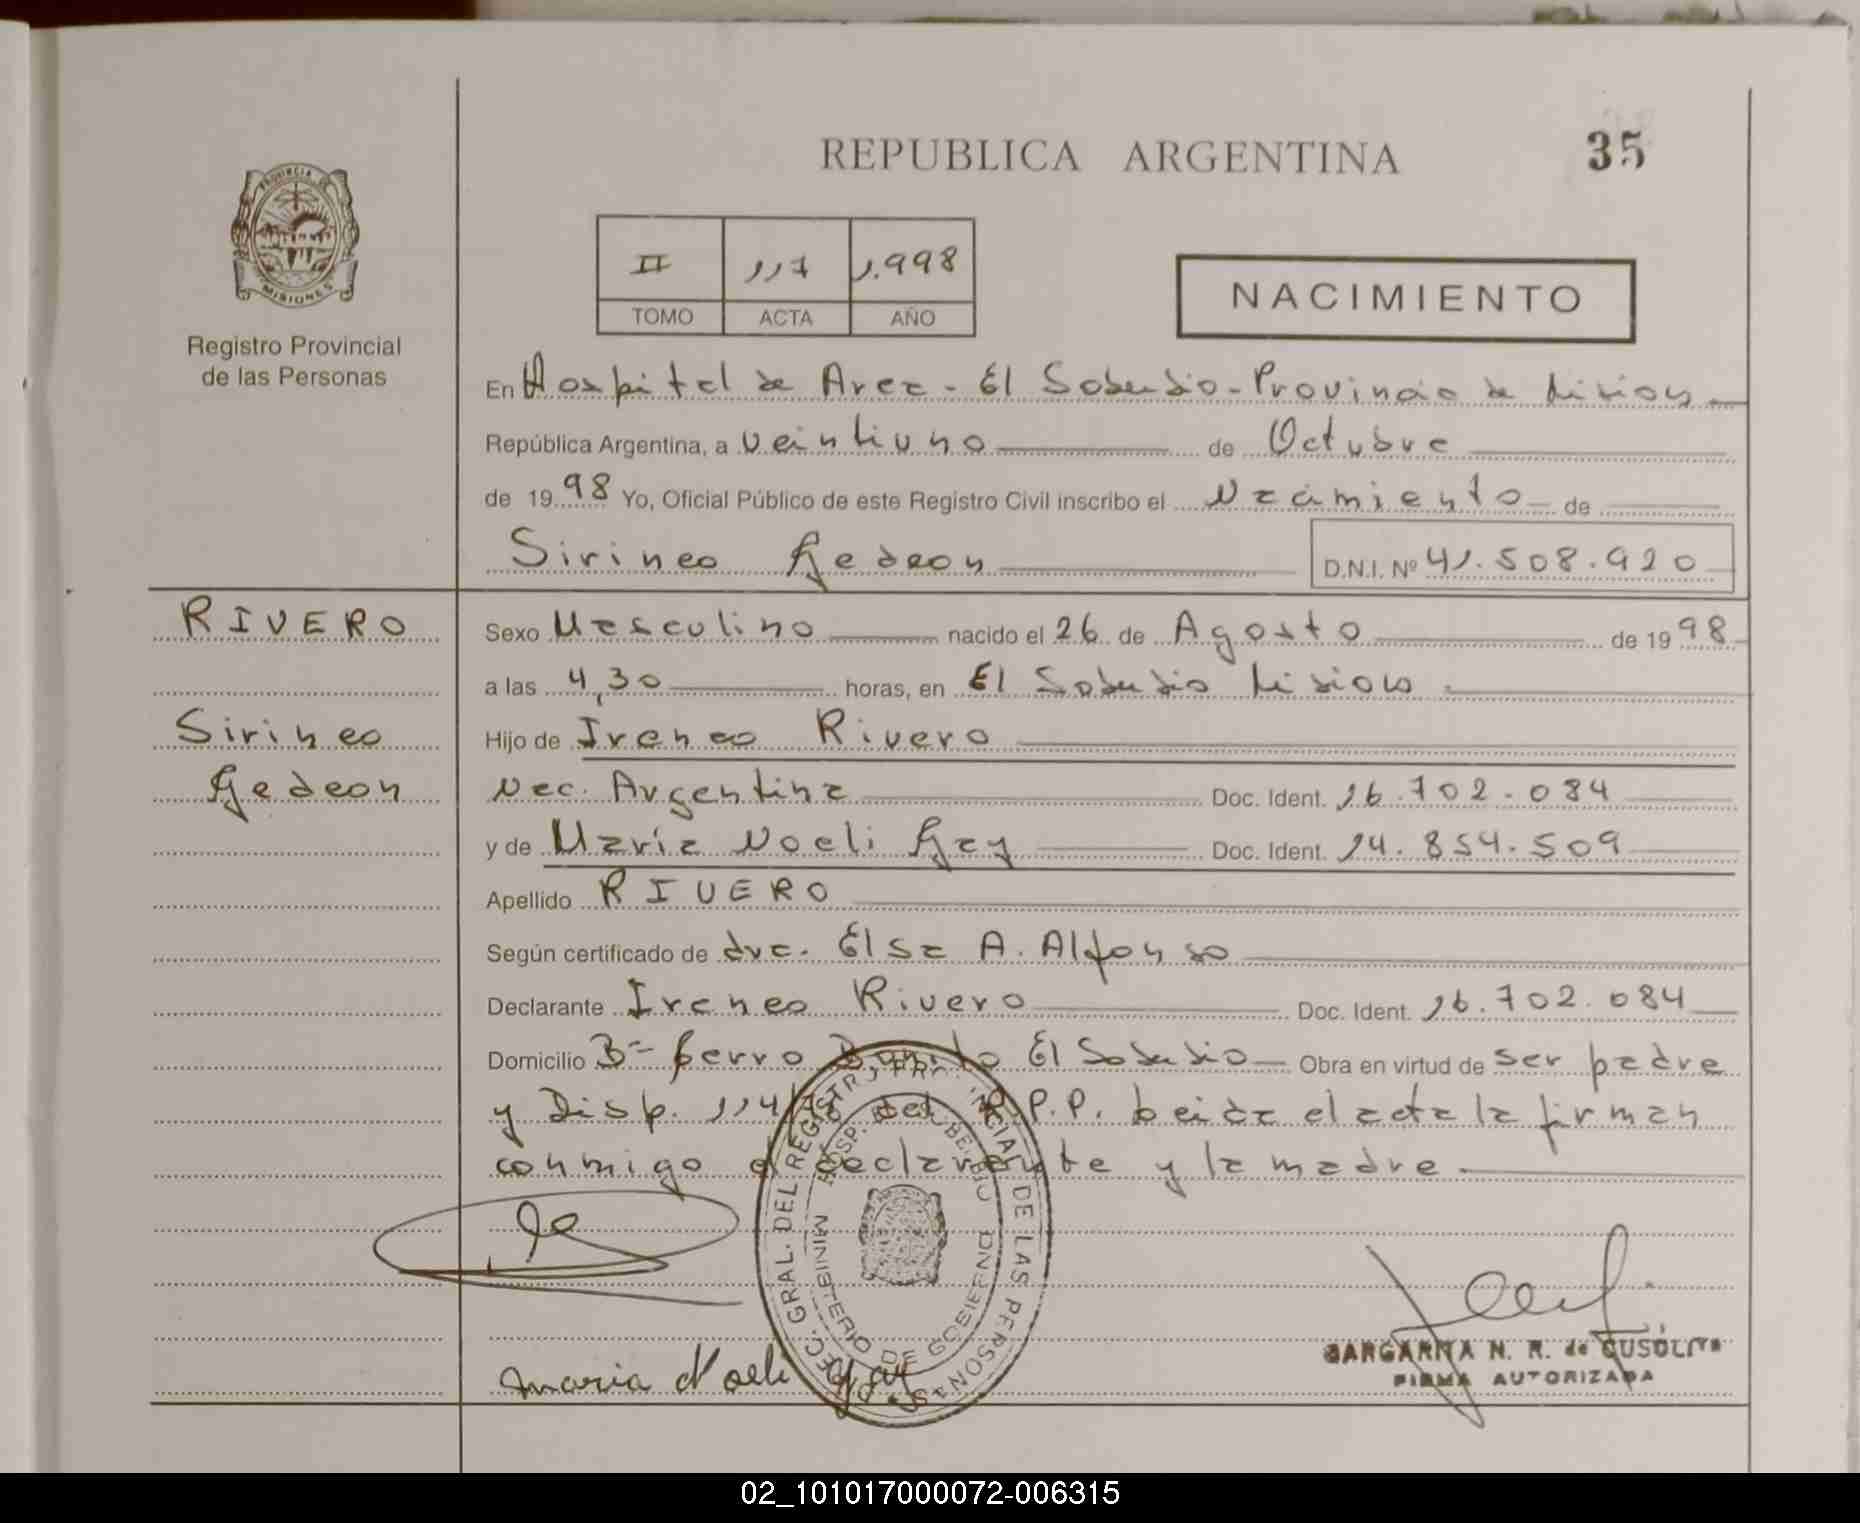 REPUBLICA ARGENTINA
35
PROVINCIA DE
MISIONES
Registro Provincial
de las Personas
II 117 1.998
TOMO ACTA AÑO
NACIMIENTO
En Hospital de Area - El Soberbio - Provincia de Misiones
República Argentina, a veintiuno de Octubre
de 19 98 Yo, Oficial Público de este Registro Civil inscribo el Nacimiento de
Sirineo Gedeon D.N.I. Nº 41.508.920
RIVERO
Sirineo
Gedeon
Sexo Masculino nacido el 26 de Agosto de 19 98
a las 4,30 horas, en El Soberbio Misiones
Hijo de Ireneo Rivero
Nac. Argentina Doc. Ident. 16.702.084
y de María Noeli Gay Doc. Ident. 14.854.509
Apellido RIVERO
Según certificado de dra. Elsa A. Alfonso
Declarante Ireneo Rivero Doc. Ident. 16.702.084
Domicilio Bº Cerro Bonito El Soberbio Obra en virtud de ser padre
y Disp. 114/ del R.P.P. leida el acta la firman
conmigo el declarante y la madre
DIREC. GRAL. DEL REGISTRO PROVINCIAL DE LAS PERSONAS
HOSP. EL SOBERBIO
MINISTERIO DE GOBIERNO
maria Noeli gay
MARGARITA N. R. de CUSOLITO
FIRMA AUTORIZADA
02_101017000072-006315